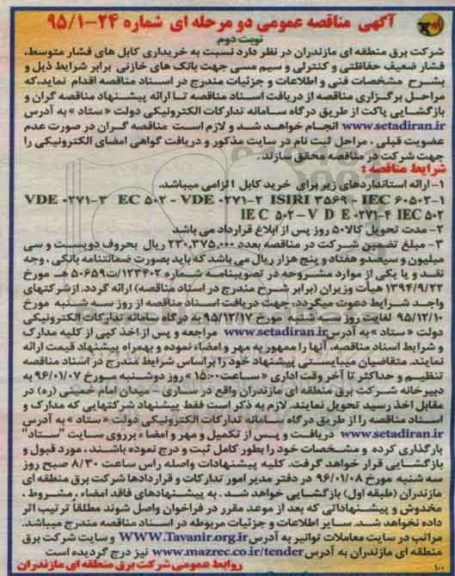 آگهی مناقصه عمومی دو مرحله ای شماره ۲۴-۹۵/۱
نوبت دوم
شرکت برق منطقه ای مازندران در نظر دارد نسبت به خریداری کابل های فشار متوسط،
فشار ضعیف حفاظتی و کنترلی و سیم مسی جهت بانک های خازنی برابر شرایط ذیل و
بشرح مشخصات فنی و اطلاعات و جزئیات مندرج در اسناد مناقصه اقدام نماید،که
مراحل برگزاری مناقصه از دریافت اسناد مناقصه تا ارائه پیشنهاد مناقصه گران و
بازگشایی پاکت از طریق درگاه سامانه تدارکات الکترونیکی دولت « ستاد » به آدرس
www.setadiran.ir انجام خواهد شد و لازم است مناقصه گران در صورت عدم
عضویت قبلی ، مراحل ثبت نام در سایت مذکور و دریافت گواهی امضای الکترونیکی را
جهت شرکت در مناقصه محقق سازند.
شرایط مناقصه :
۱- ارائه استانداردهای زیر برای خرید کابل الزامی میباشد.
VDE ۰۲۷۱-۳ EC ۵۰۲ - VDE ۰۲۷۱-۲ ISIRI ۳۵۶۹ - IEC ۶۰۵۰۲-۱
IE C ۵۰۲ – V D E ۰۲۷۱-۴ IEC ۵۰۲
۲- مدت تحویل کالا ۵۰ روز پس از ابلاغ قرارداد می باشد
۳- مبلغ تضمین شرکت در مناقصه بعدد ۲۳۰,۳۷۵,۰۰۰ ریال بحروف دویست و سی
میلیون و سیصدو هفتاد و پنج هزار ریال می باشد که باید بصورت ضمانتنامه بانکی ، وجه
نقد و یا یکی از موارد مشروحه در تصویبنامه شماره ۱۲۳۴۰۲/ت۵۰۶۵۹ هـ مورخ
۱۳۹۴/۹/۲۲ هیأت وزیران (برابر شرح مندرج در اسناد مناقصه) ارائه گردد. ازشرکتهای
واجد شرایط دعوت میگردد، جهت دریافت اسناد مناقصه از روز سه شنبه مورخ
۹۵/۱۲/۱۰ لغایت روز شنبه مورخ ۹۵/۱۲/۱۷ به درگاه سامانه تدارکات الکترونیکی
دولت « ستاد » به آدرس www.setadiran.ir مراجعه و پس از اخذ کپی از کلیه مدارک
و شرایط اسناد مناقصه، آنها را ممهور به مهر و امضاء نموده و بهمراه پیشنهاد قیمت ارائه
نمایند. متقاضیان میبایستی پیشنهاد خود را براساس شرایط مندرج در اسناد مناقصه
تنظیم و حداکثر تا آخر وقت اداری « ساعت ۱۵:۰۰ » روز دوشنبه مورخ ۹۶/۰۱/۰۷ به
دبیرخانه شرکت برق منطقه ای مازندران واقع در ساری - میدان امام خمینی (ره) در
مقابل اخذ رسید تحویل نمایند. لازم به ذکر است فقط پیشنهاد شرکتهایی که مدارک و
اسناد مناقصه را از طریق درگاه سامانه تدارکات الکترونیکی دولت « ستاد » به آدرس
www.setadiran.ir دریافت و پس از تکمیل و مهر و امضاء برروی سایت "ستاد"
بارگذاری کرده و مشخصات خود را بطور کامل ثبت و درج نموده باشند ، مورد قبول و
بازگشایی قرار خواهد گرفت. کلیه پیشنهادات واصله راس ساعت ۸/۳۰ صبح روز
سه شنبه مورخ ۹۶/۰۱/۰۸ در دفتر مدیر امور تدارکات و قراردادها شرکت برق منطقه ای
مازندران (طبقه اول) بازگشایی خواهد شد . به پیشنهادهای فاقد امضاء ، مشروط ،
مخدوش و پیشنهاداتی که بعد از موعد مقرر در فراخوان واصل شوند مطلقا ترتیب اثر
داده نخواهد شد. سایر اطلاعات و جزئیات مربوطه در اسناد مناقصه مندرج میباشد.
مراتب در سایت معاملات توانیر به آدرس WWW.Tavanir.org.ir و سایت شرکت برق
منطقه ای مازندران به آدرس www.mazrec.co.ir/tender نیز درج گردیده است
روابط عمومی شرکت برق منطقه ای مازندران